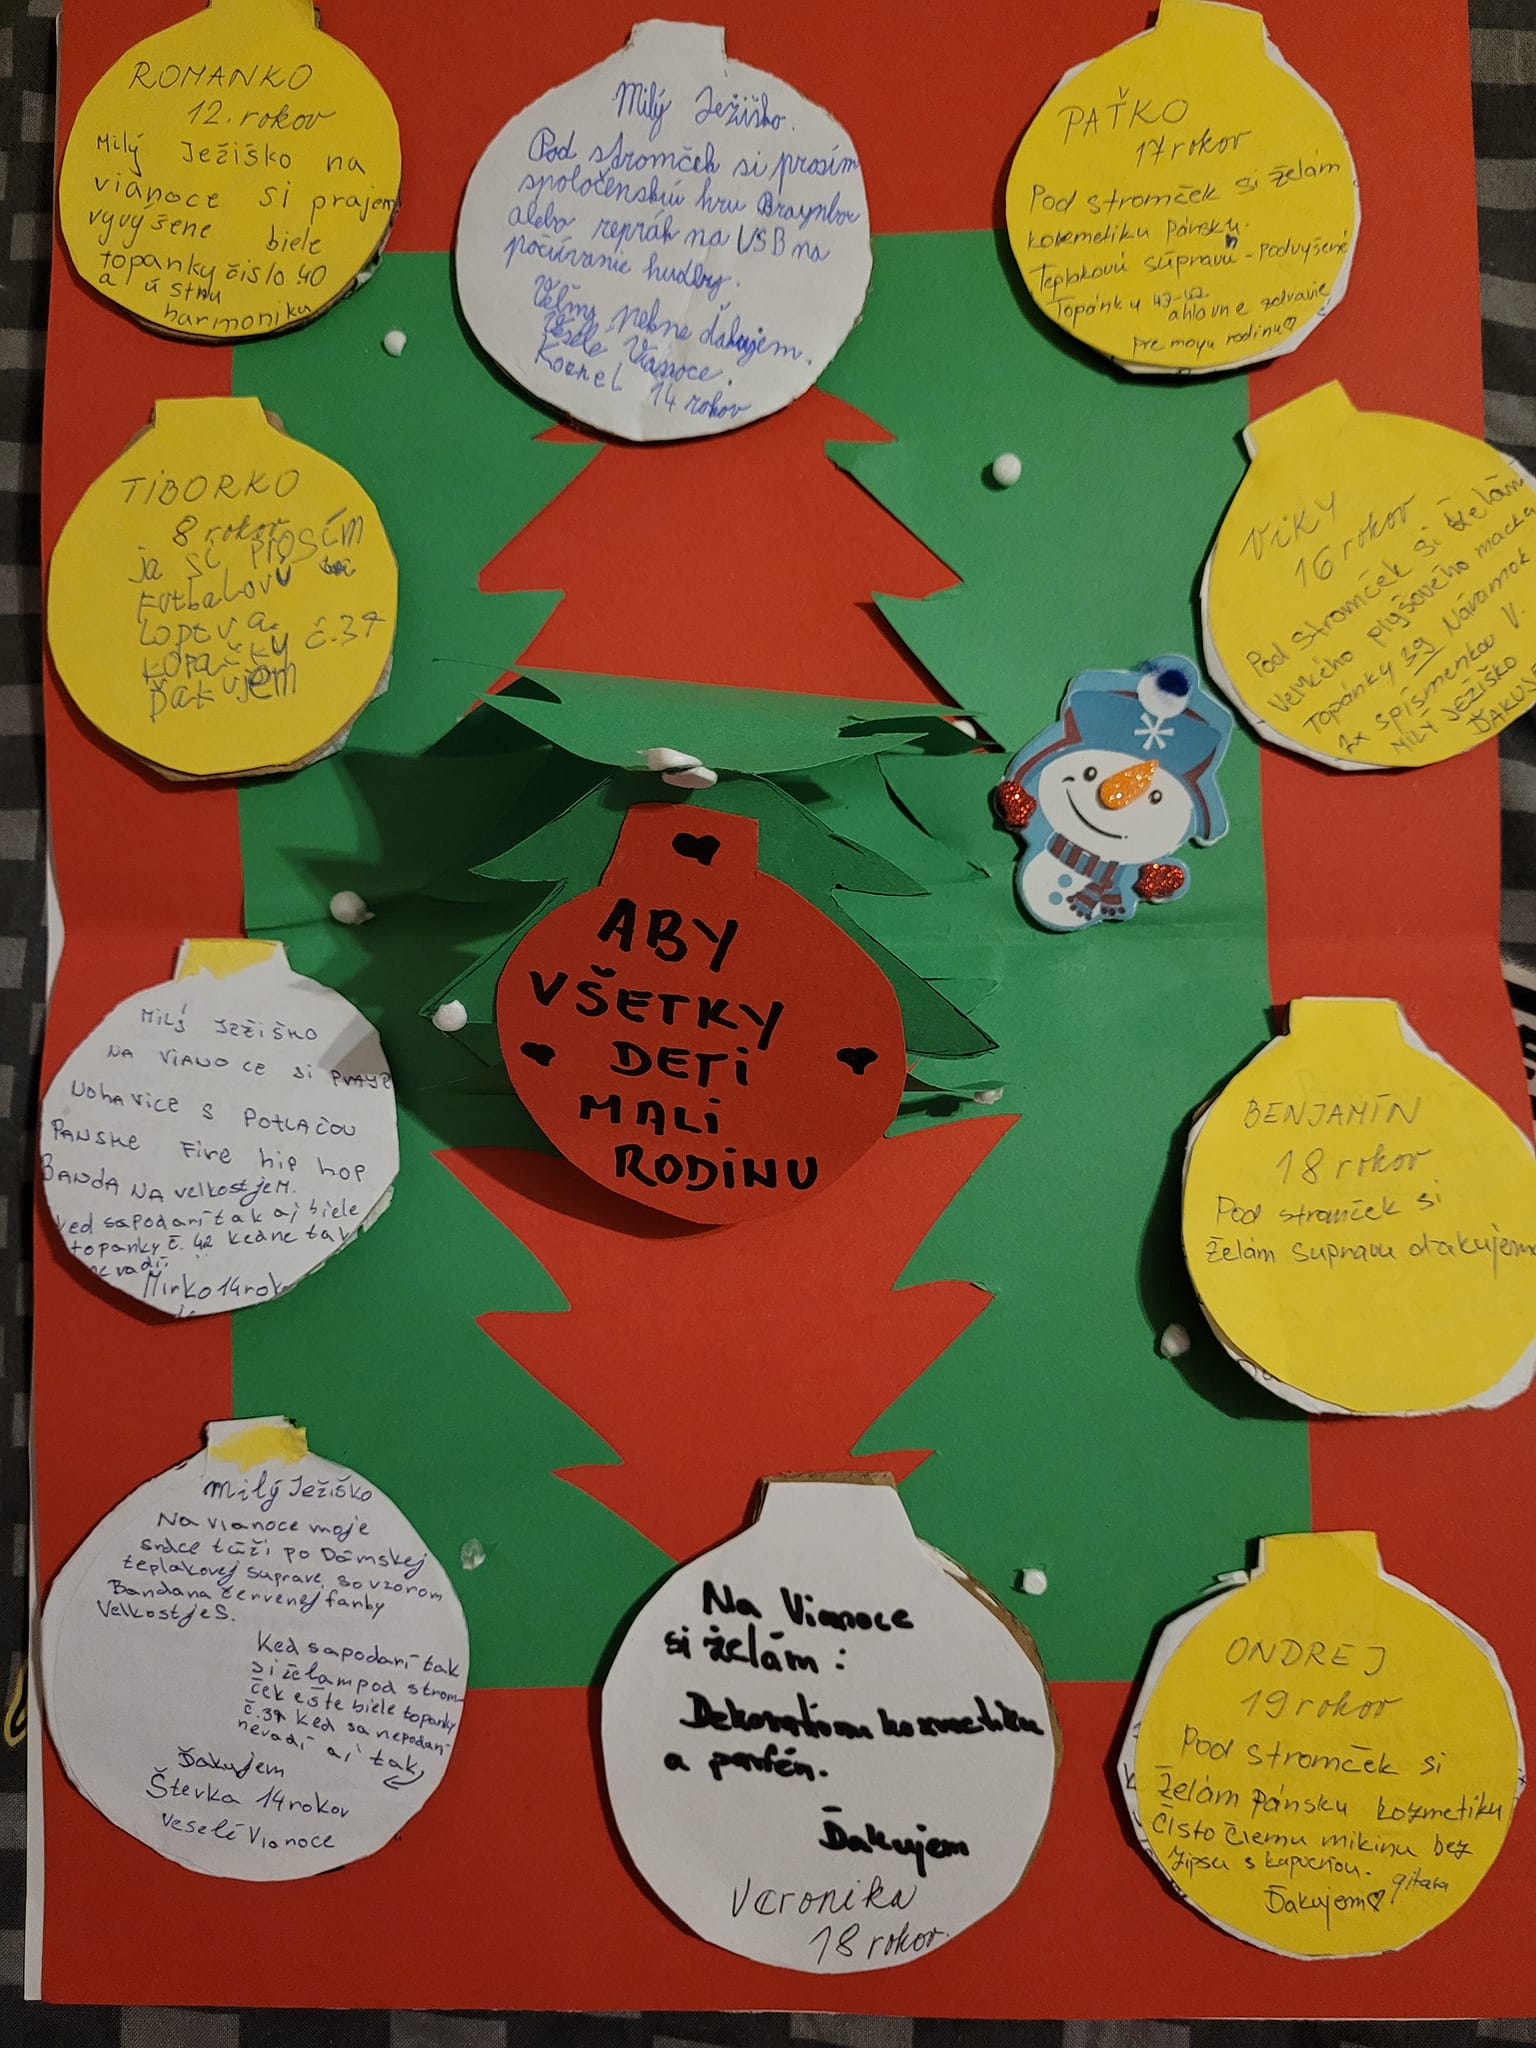 ROMANKO
12. rokov
Milý Ježiško na
vianoce si prajem
vyvýšene biele
topanky čislo 40
a ústnu
harmoniku
Milý Ježiško.
Pod stromček si prosím
spoločenskú hru Braynbox
alebo repráh na USB na
počúvanie hudby.
Veľmy pekne ďakujem.
Vesele Vianoce.
Kornel 14 rokov
PAŤKO
17 rokov
Pod stromček si želám
kozemetiku pánsku.
Teplakovú súpravu - Podvyšené
Topánky 43-42
a hlavne zdravie
pre moju rodinu♡
TIBORKO
8 rokov
ja si PrOSÍM
FUtbaLovú
Loptu a
KOPAČKY č.37
ĎakUJEM
VIKY
16 rokov
Pod stromček si želám
Veľkého plyšového macka
Topánky 39 Náramok
2x spísmenkou V.
Milý JEŽIŠKO
ĎAKUJE
MILÝ JEŽIŠKO
NA VIANOCE Si PRAJE
NOHAVICE S POTLAČOU
PANSKE Fire hip hop
BANDA NA velkostjeM.
ked sapodarí tak aj biele
topanky č. 42 kedne tak
nevadí.
Mirko 14 rok
ABY
VŠETKY
DETI
MALI
RODINU
BENJAMÍN
18 rokov
Pod stromček si
želám supravu ďakujem
Milý Ježiško
Na vianoce moje
srdce túži po Dámskej
teplakovej suprave so vzorom
Bandana červenej farby
Velkostje S.
Ked sapodarí tak
si želam pod strom-
ček ešte biele topanky
č.39 Ked sa nepodarí
nevadí aj tak
Ďakujem
Števka 14 rokov
Veselé Vianoce
Na Vianoce
si želám :
Dekoratívnu kozmetiku
a parfén.
Ďakujem
Veronika
18 rokov.
ONDREJ
19 rokov
Pod stromček si
želám pánsku kozmetiku
Čisto čiernu mikinu bez
zipsu s kapucňou.
gitara
Ďakujem♡